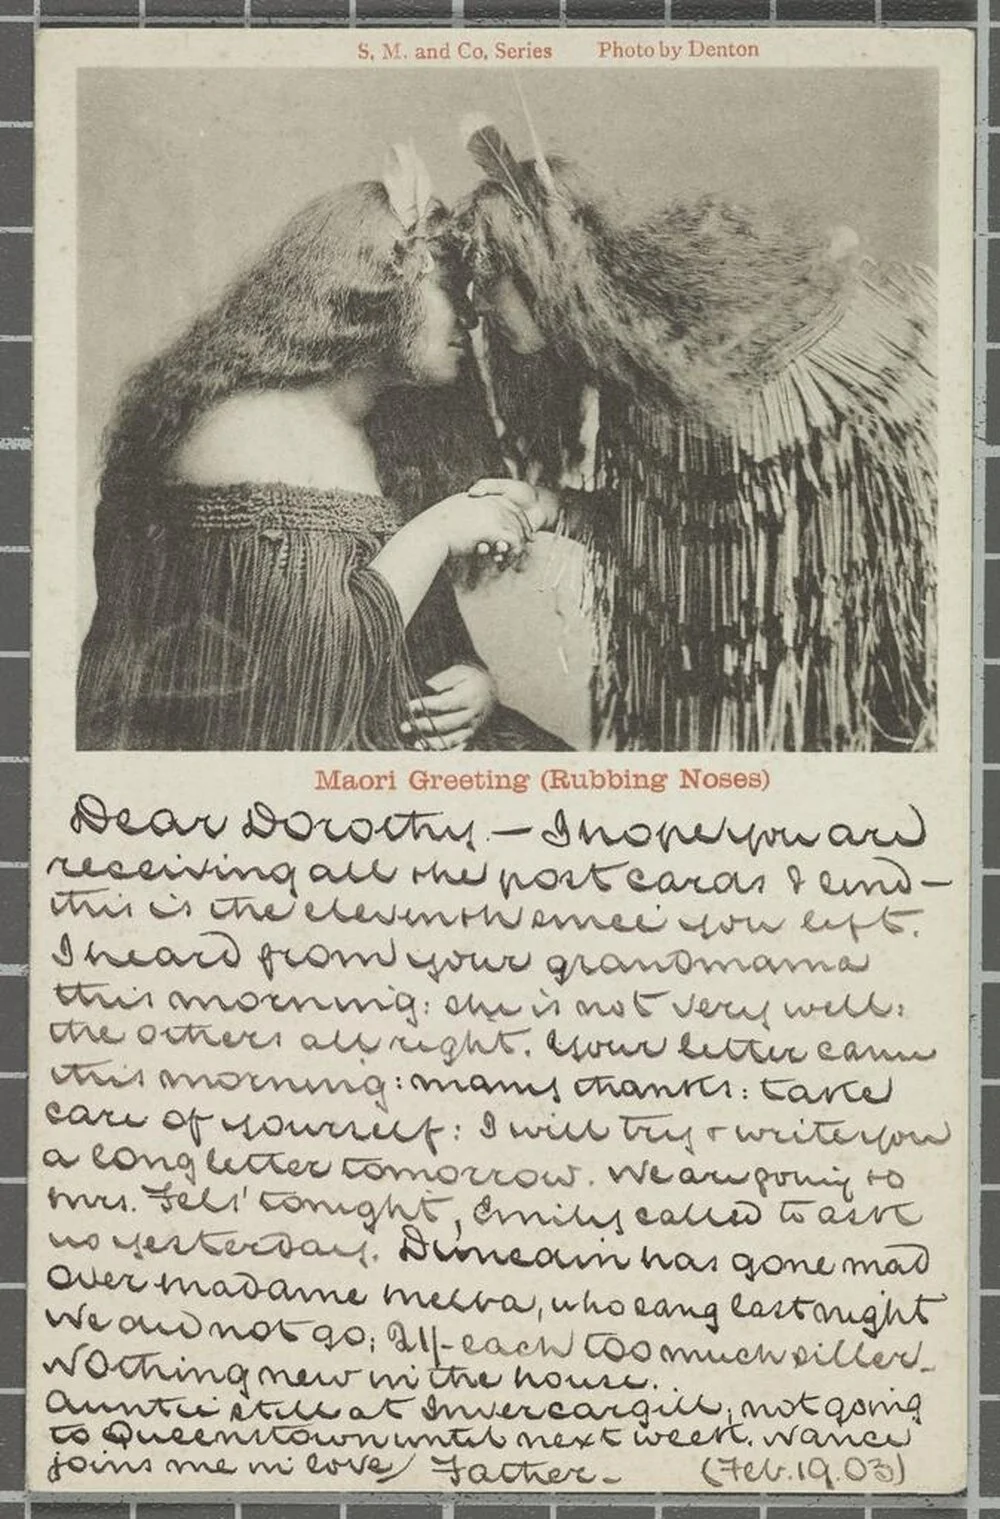 S. M. and Co. Series Photo by Denton
Maori Greeting (Rubbing Noses)
Dear Dorothy. — I hope you are
receiving all the post cards I send —
this is the eleventh since you left.
I heard from your grandmama
this morning: she is not very well:
the others all right. Your letter came
this morning: many thanks: take
care of yourself: I will try & write you
a long letter tomorrow. We are going to
Mrs. Fels' tonight, Emily called to ask
us yesterday. Dunedin has gone mad
over Madame Melba, who sang last night
We did not go; 21/- each too much siller.
Nothing new in the house.
Auntie still at Invercargill; not going
to Queenstown until next week. Nance
joins me in love Father — (Feb. 19. 03)